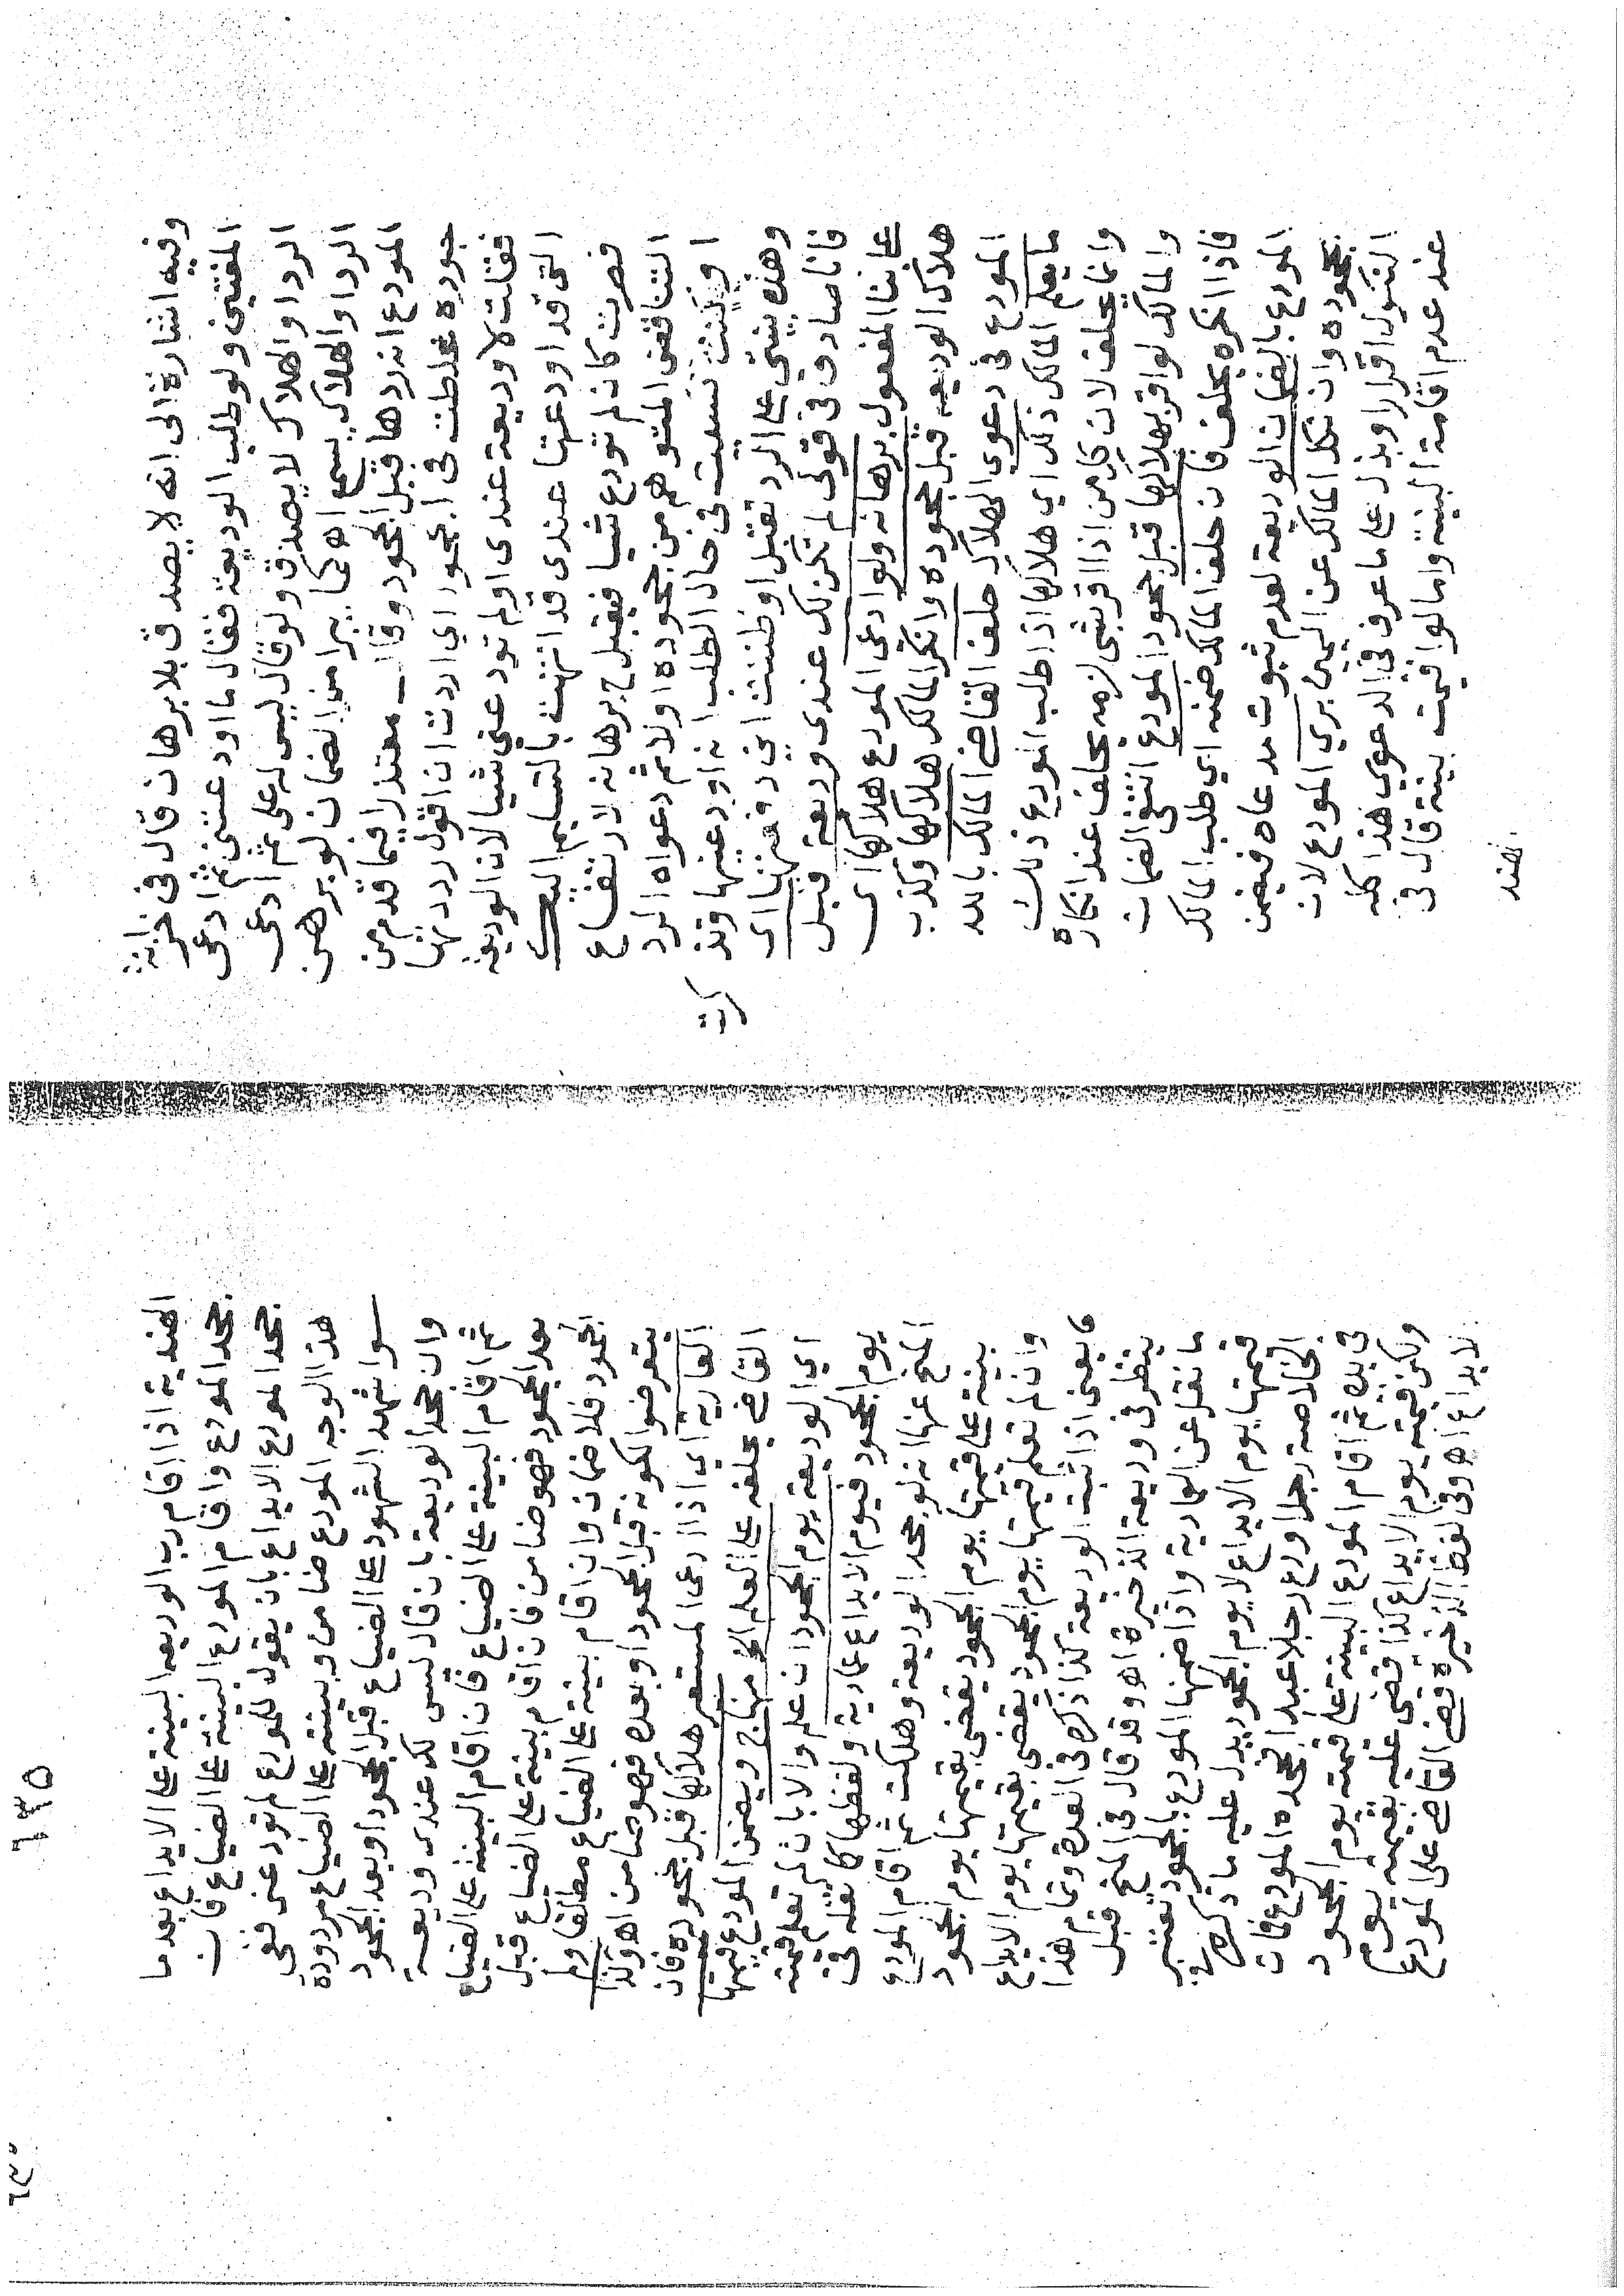 وفيه اشارة الى انه لا يصدق بلا برهان قال في خزانة
المفتين ولو طلب الوديعة فقال ما اودعتني ثم ادعى
الرد او الهلاك لا يصدق ولو قال ليس له على ثم ادعى
الرد او الهلاك يسمع اه كما يبرا من الضمان لو برهن
المودع انه ردها قبل الجحود وقال معتذرا فيما قدم من
جحوده غلطت في الجحود اي اردت ان اقول رددتها
فقلت لا وديعة عندى او لم تودعني شيا لان الوديعة
التي قد اودعتها عندى قد انتهت بالتسليم اليك
فصرت كان لم تودع شيا فيقبل ح برهانه لارتفاع
التناقض المتوهم من جحوده اولا ثم دعواه الرد
او نسيت في حال الطلب انه اودعنيها وقد
وهذه بينتي على الرد تقبل او ظننت اني دفعتها اى
فانا صادق في قولى لم تكن لك عندى وديعة قبل
المفعول برهانه ولو ادعى المودع هلاكها اى
هلاك الوديعه قبل جحوده وانكر المالك هلاكها وكذب
المودع في دعوي الهلاك حلف القاضي المالك بالله
ما يعلم المالك ذلك اي هلاكها اذا طلب المودع ذلك
وانما يحلف لان كل من اذا اقر بشى لزمه يحلف عند انكاره
والمالك لو اقر بهلاكها قبل جحود المودع انتفى الضمان
فاذا انكره يحلف فان حلف المالك ضمنه اي طلب المالك
المودع بالضمان الوديعة لعدم ثبوت مدعاه فيضمن
بجحوده وان نكل المالك عن اليمين بري المودع لان
النكول اقرار او بذل على ما عرف في الدعوي هذا كله
عند عدم اقامة البينة واما لو اقيمت بينة قال في
الهندية اذا اقام رب الوديعه البينة على الايداع بعد ما
جحد المودع واقام المودع البينة على الضياع فان
جحد المودع الايداع بان يقول للمودع لم تودعني ففى
هذا الوجه المودع ضامن وبينته على الضياع مردودة
سوا شهد الشهود على الضياع قبل الجحود او بعد الجحود
وان جحد الوديعة بان قال ليس لك عندى وديعة
ثم اقام البينة على الضياع فان اقام البينة على الضياع
بعد الجحود فهو ضامن فان اقام بينة على الضياع قبل
الجحود فلا ضمان وان اقام بينة على الضياع مطلقا ولم
يتعرضوا لكونه قبل الجحود او بعده فهو ضامن اه وكذا
العارية اي اذا ادعى المستعير هلاكها قبل جحوده فان
القاضي يحلفه على العلم اه منهاج ويضمن المودع قيمتها
اي الوديعة يوم الجحود ان علم والا بان لم تعلم قيمته
يوم الجحود فيوم الايداع عمادية ولفظها كما نقله في
المنح عنها انه لو جحد الوديعة وهلكت ثم اقام المودع
بينة على قيمتها يوم الجحود يقضي بقيمتها يوم الجحود
وان لم تعلم قيمتها يوم الجحود يقضي بقيمتها يوم الايداع
يعني اذا اثبت الوديعة كذا ذكره في العدة وتمام هذا
ينظر في وديعة الذخيرة اه وقد قال في المنح قبل
ما نقل عن العمادية واذا ضمنها المودع بالجحود يعتبر
قيمتها يوم الايداع لا يوم الجحود يدل عليه ما ذكره في
الخلاصة رجل اودع رجلا عبدا فجحده المودع فمات
في يده ثم اقام المودع البينة على قيمته يوم الجحود
ولكن قيمته يوم الايداع كذا قضى عليه بقيمته يوم
الايداع اه وفى لفظ الذخيرة قضى القاضي على المودع
٦٣٥